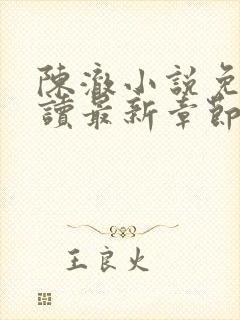 陳澈小說免
讀最新章節
王良火